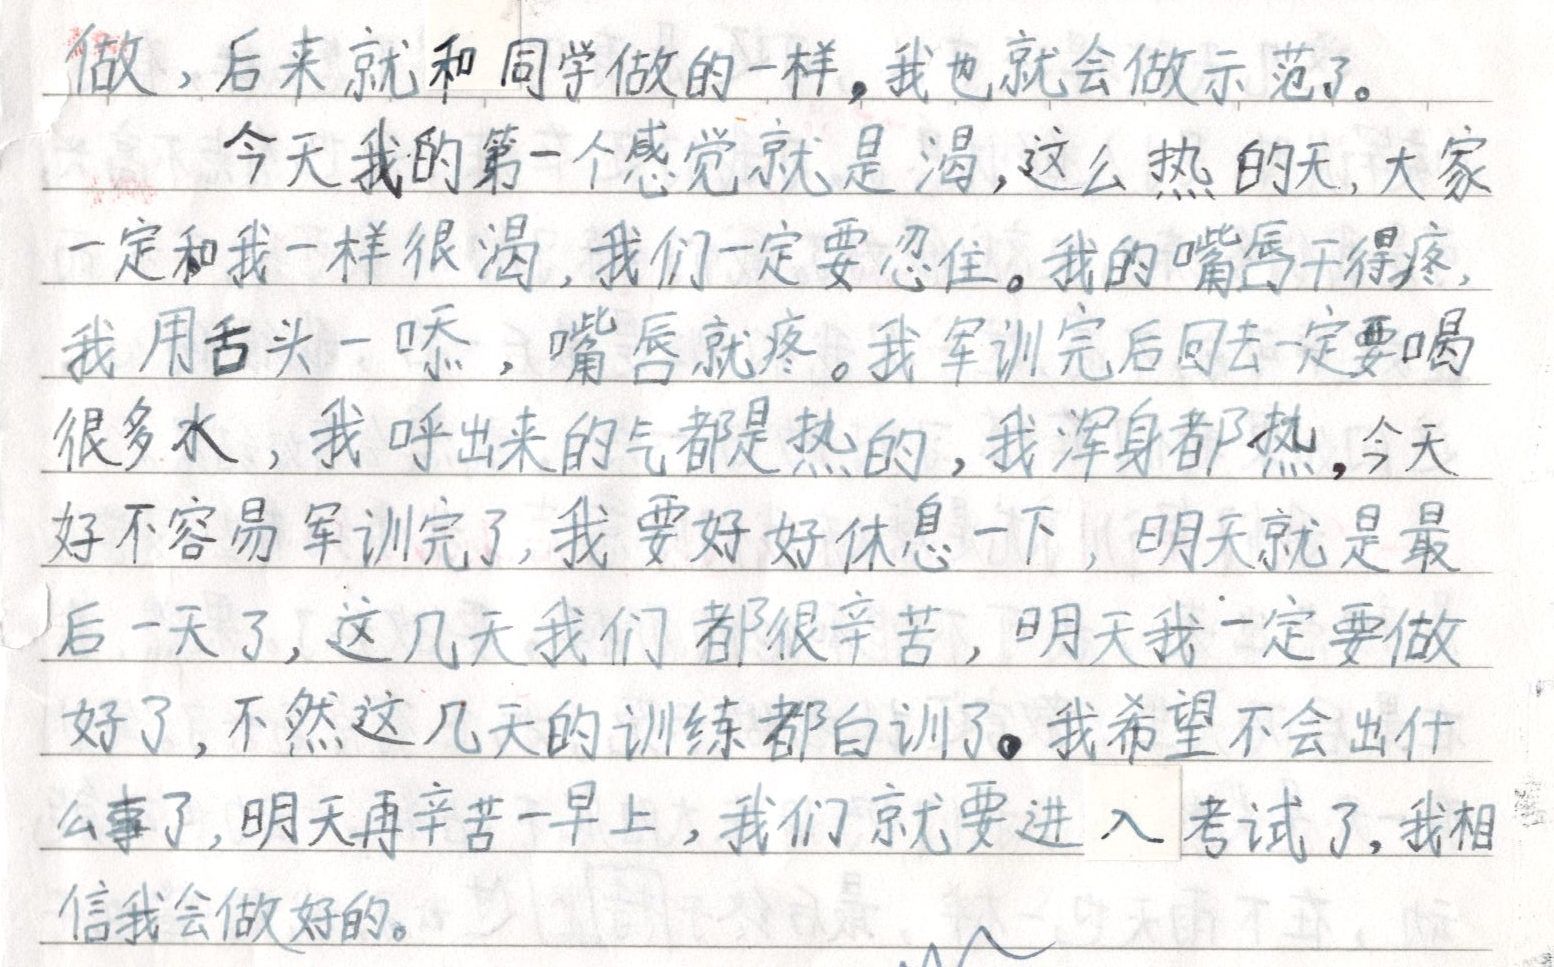 做，后来就和同学做的一样，我也就会做示范了。
今天我的第一个感觉就是渴，这么热的天，大家
一定和我一样很渴，我们一定要忍住。我的嘴唇干得疼，
我用舌头一舔，嘴唇就疼。我军训完后回去一定要喝
很多水，我呼出来的气都是热的，我浑身都热，今天
好不容易军训完了，我要好好休息一下，明天就是最
后一天了，这几天我们都很辛苦，明天我一定要做
好了，不然这几天的训练都白训了。我希望不会出什
么事了，明天再辛苦一早上，我们就要进入考试了，我相
信我会做好的。